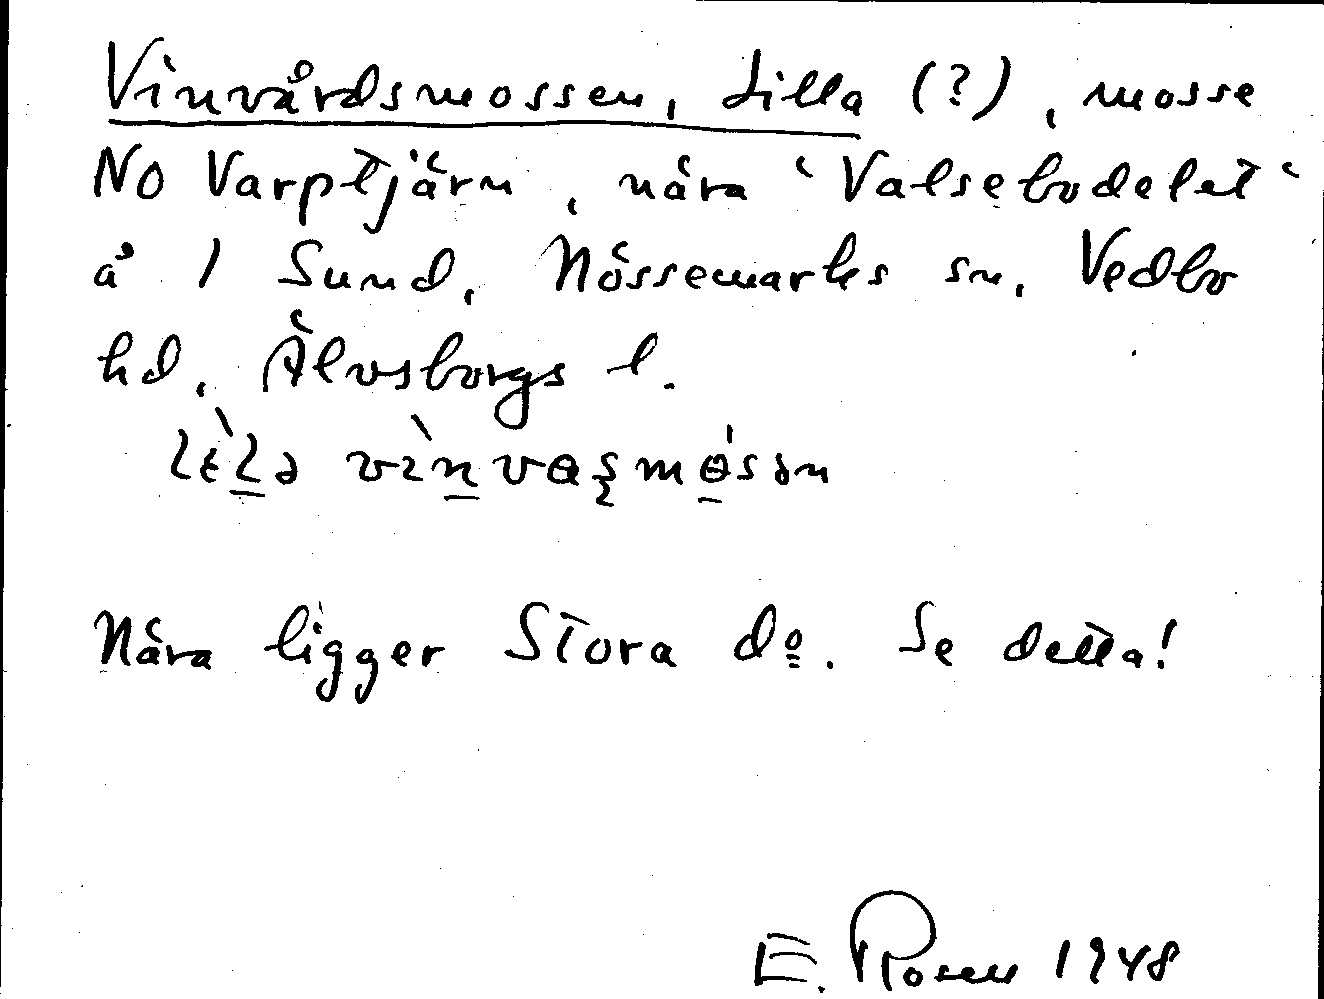 Vinvårdsmossen, Lilla (?), mosse
NO Varptjärn, nära 'Valsebodelet'
å 1 Sund, Nössemarks sn, Vedbo
hd, Älvsborgs l.
Nära ligger Stora do. Se detta!
E. Rosen 1948